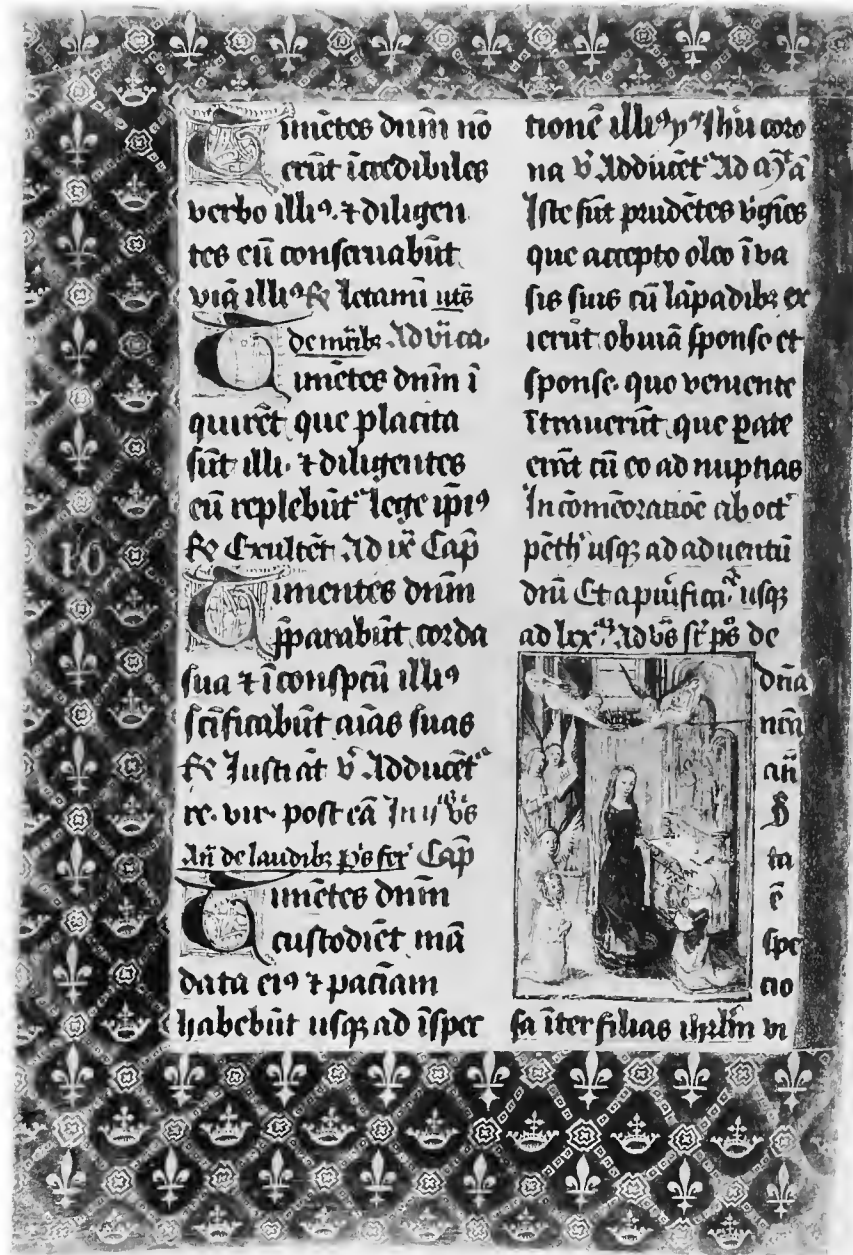 Timētes dnm̄ nō
erūt īcredibiles
verbo illiꝰ ⁊ diligen
tes eū conseruabūt
viā illiꝰ ℟ letami uts
de mrib; Ad vīca.
Timētes dnm̄ ī
quirēt que placita
sūt illi. ⁊ diligentes
eū replebūt lege ip̄iꝰ
℟ Exultēt Ad ix̄ Cap̄
Timentes dnm̄
p̄parabūt corda
sua ⁊ īconspcū illiꝰ
sc̄ificabūt aīas suas
℟ Justi āt v̄ Adducēt
re. vir. post eā In ij vs̄
An̄ de laudib; Cap̄
Timētes dnm̄
custodiēt mā
data eiꝰ ⁊ pac̄iam
habebūt usq; ad īspec
tionē illiꝰ Ihū coro
na v̄ Adducēt Ad
Iste sūt prudētes v̄gīes
que accepto oleo ī va
sis suis cū lāpadib; ex
ierūt obuiā sponso et
sponse. quo veniente
ītrauerūt que pate
erāt cū eo ad nuptias
In cōmēoratiōe ab oct
pēth usq; ad aduentū
dnī Et a puīfica usq;
ad lxx Ad vs̄ de
dn̄a
nr̄a
an̄
S
ta
ē
spe
cio
sa īter filias ihrl̄m vi
10